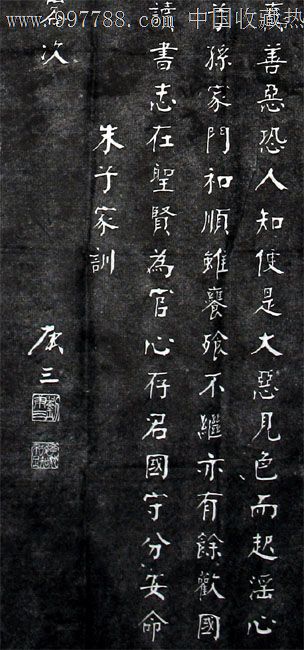 www.997788.com 中国收藏热
善惡恐人知便是大惡見色而起淫心
孫家門和順雖饔飧不繼亦有餘歡國
讀書志在聖賢為官心存君國守分安命
朱子家訓
次
康三